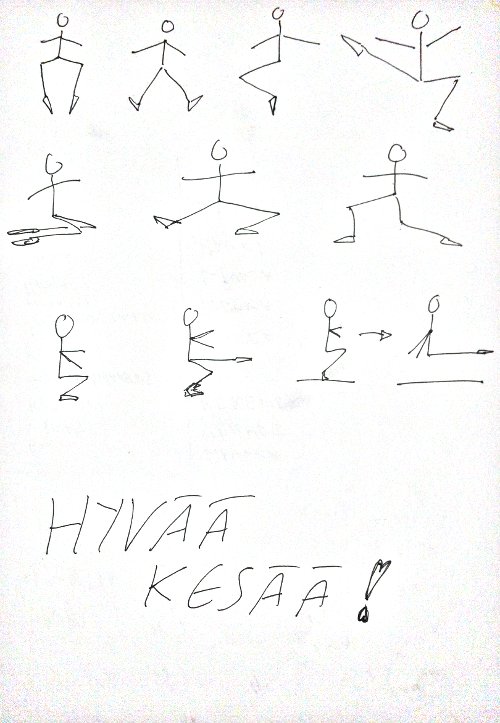 HYVÄÄ
KESÄÄ!